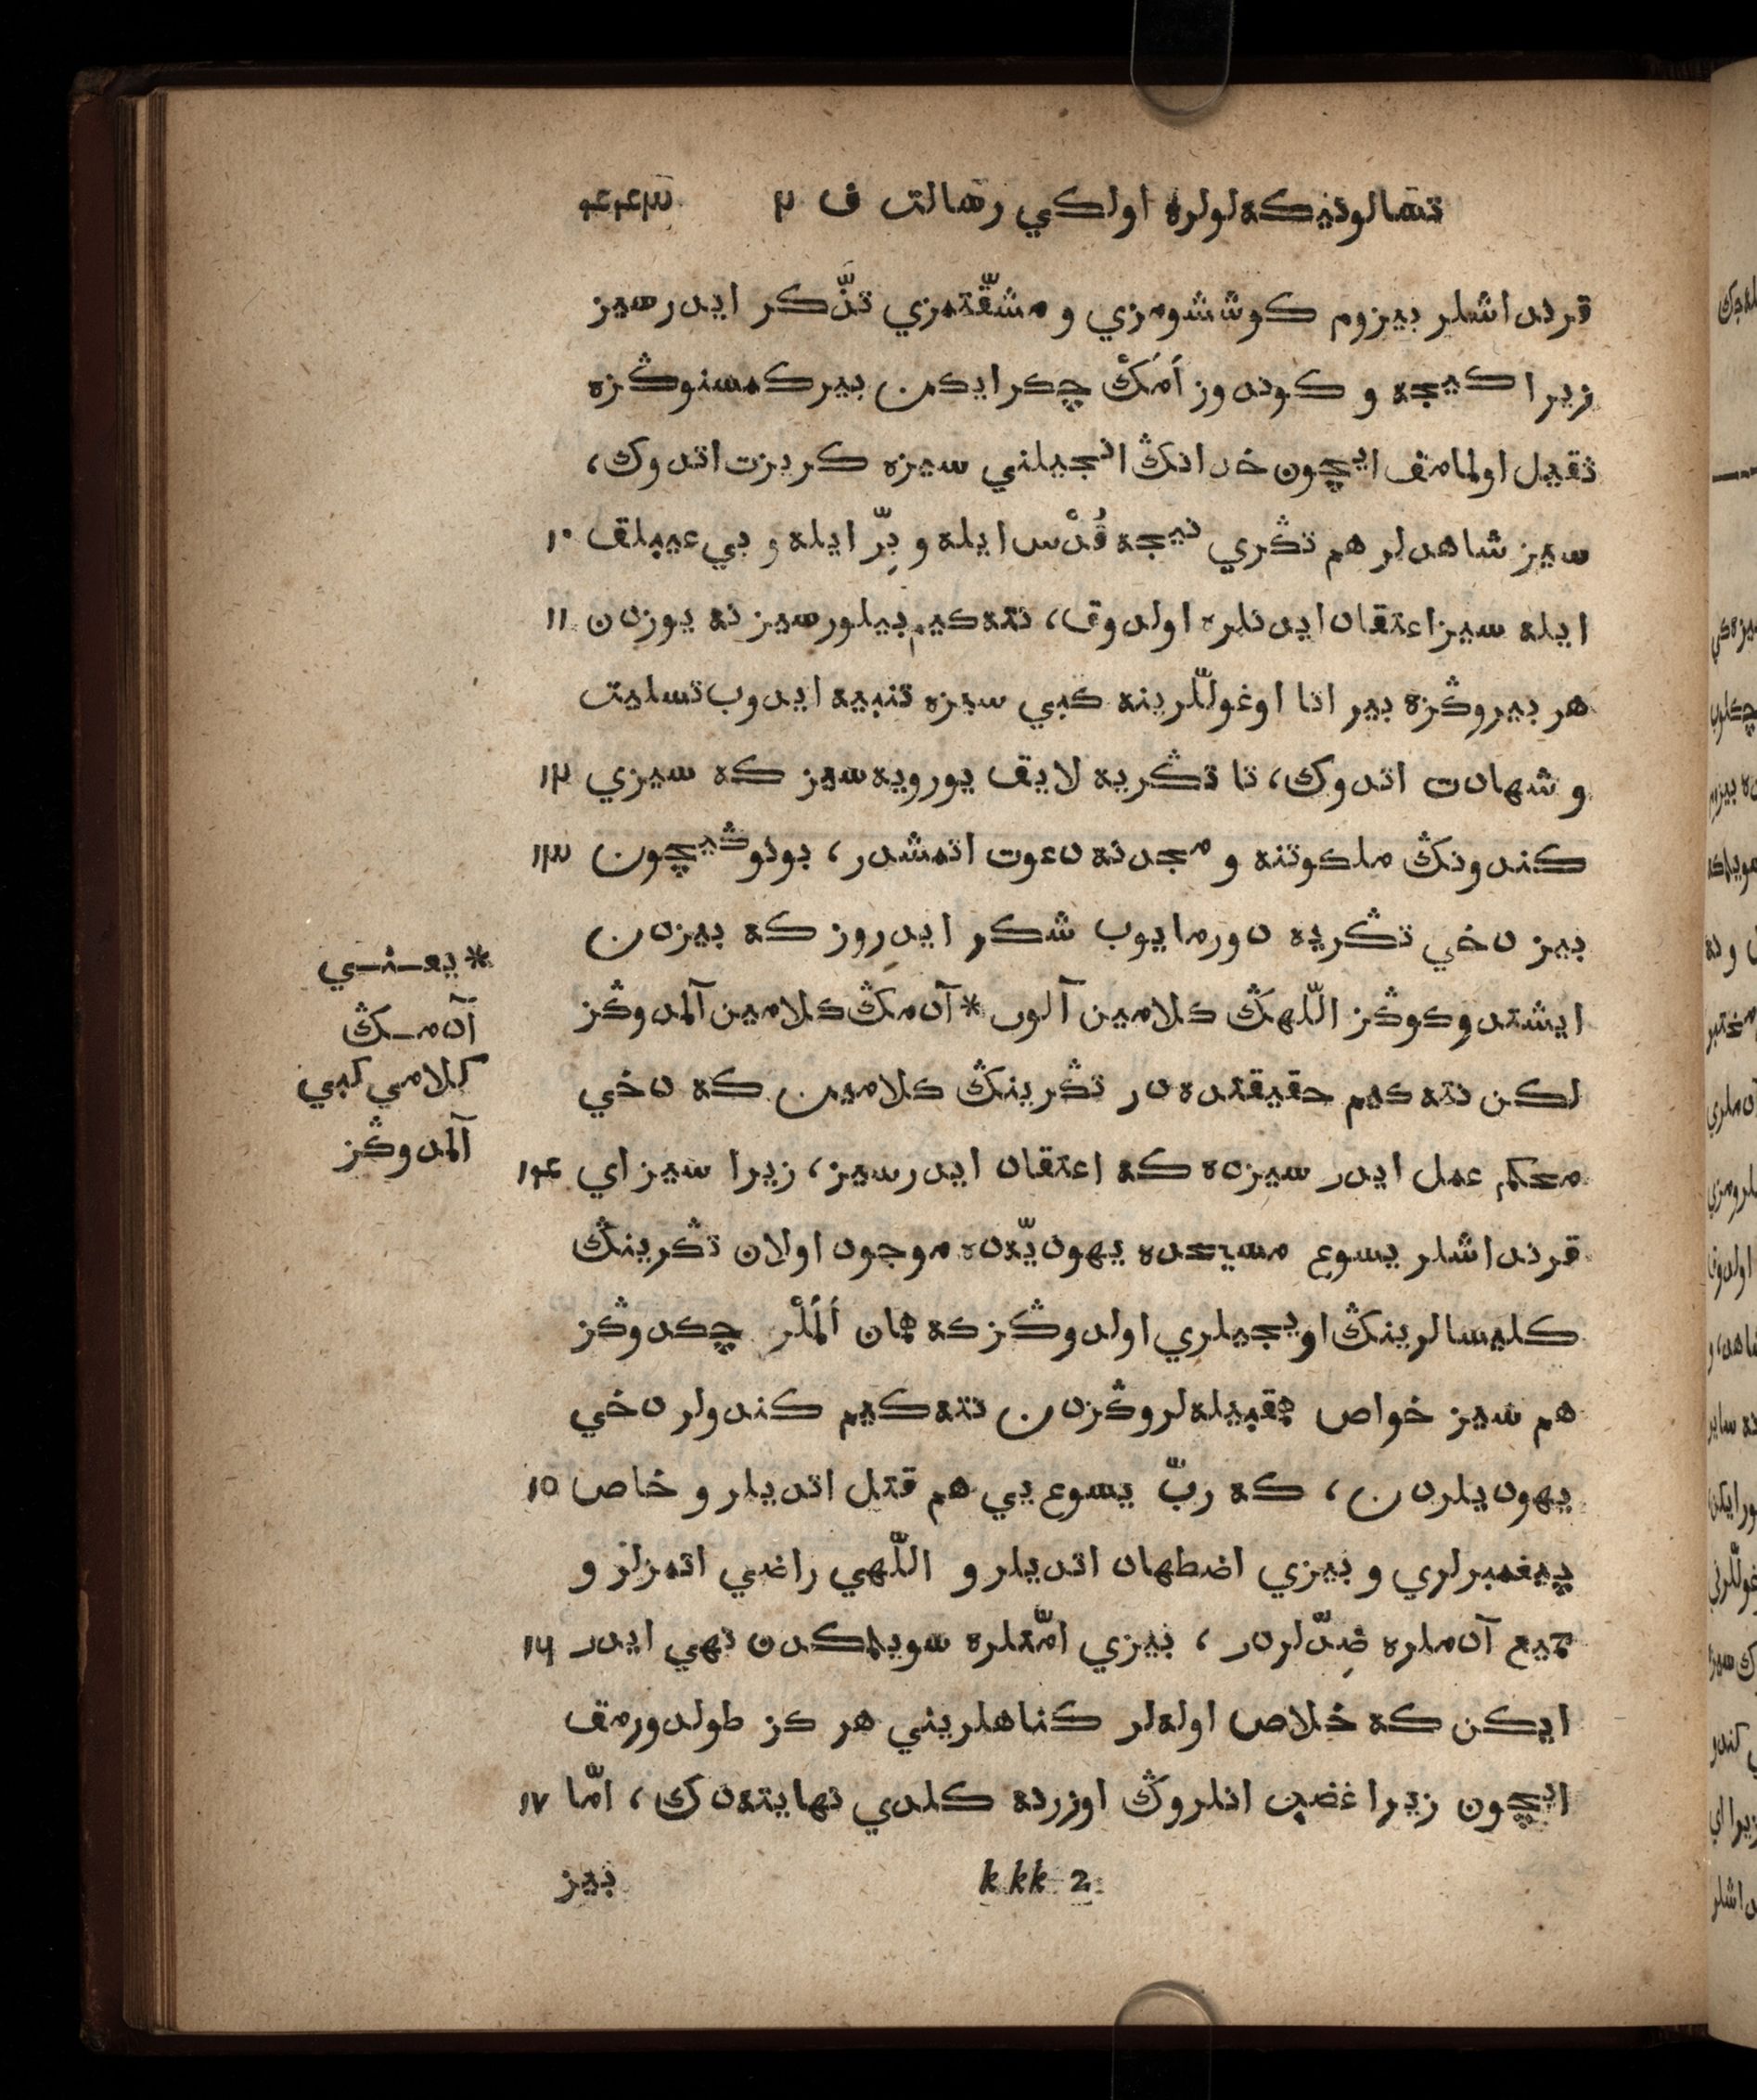 تسالونيكه‌لولره اولكي رسالت ف ٢ ٤٤٣
قرنداشلر بيزوم كوششومزي و مشقّتمزي تذّكر ايدرسيز
زيرا كيجه و كوندوز اَمَكْ چكرايكن بيركمسنوڭزه
ثقيل اولمامق ايچون خدانڭ انجيلني سيزه كريزت اتدوك،
سيز شاهدلر هم تڭري نيجه قُدْس ايله و بِرّ ايله و بي عيبلق ١٠
ايله سيز اعتقاد ايدنلره اولدوق، نته‌كيم بيلورسيز نه يوزدن ١١
هر بيروڭزه بير اتا اوغوللّرينه كبي سيزه تنبيه ايدوب تسليت
و شهادت اتدوك، تا تڭريه لايق يورويه‌سيز كه سيزي ١٢
كندونڭ ملكوتنه و مجدنه دعوت اتمشدر، بونوڭيچون ١٣
بيز دخي تڭريه دورمايوب شكر ايدِروز كه بيزدن
ايشتدوكوڭز اللّهڭ كلامين آلوب * آدمڭ كلامين آلمدوڭز
لكن نته كيم حقيقتده‌در تڭرينڭ كلامين كه دخي
محكم عمل ايدر سيزده كه اعتقاد ايدرسيز، زيرا سيز اي ١٤
قرنداشلر يسوع مسيحده يهوديّه‌ده موجود اولان تڭرينڭ
كليسالرينڭ اويجيلري اولدوڭز كه همان اَلَمْلَر چكدوڭز
هم سيز خواص همقبيله‌لروڭزدن نته‌كيم كندولر دخي
يهوديلردن، كه ربّ يسوع يي هم قتل اتديلر و خاص ١٥
پيغمبرلري و بيزي اضطهاد اتديلر و اللّهي راضي اتمزلر و
جميع آدملره ضِدّلردر، بيزي امّتلره سويلمكدن نهي ايدر ١٦
ايكن كه خلاص اوله‌لر كناهلريني هر كز طولدورمق
ايچون زيرا غضب انلروڭ اوزرنه كلدي نهايته‌دك، امّا ١٧
k kk 2
بيز
* يعني
آدمڭ
كلامي كبي
آلمدوڭز